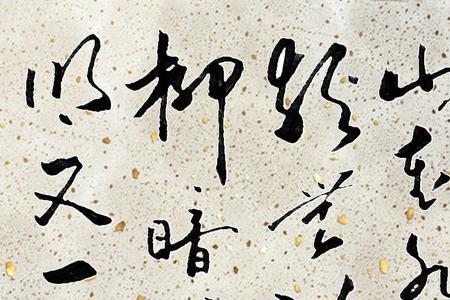 山重水
疑無
柳暗
明又一